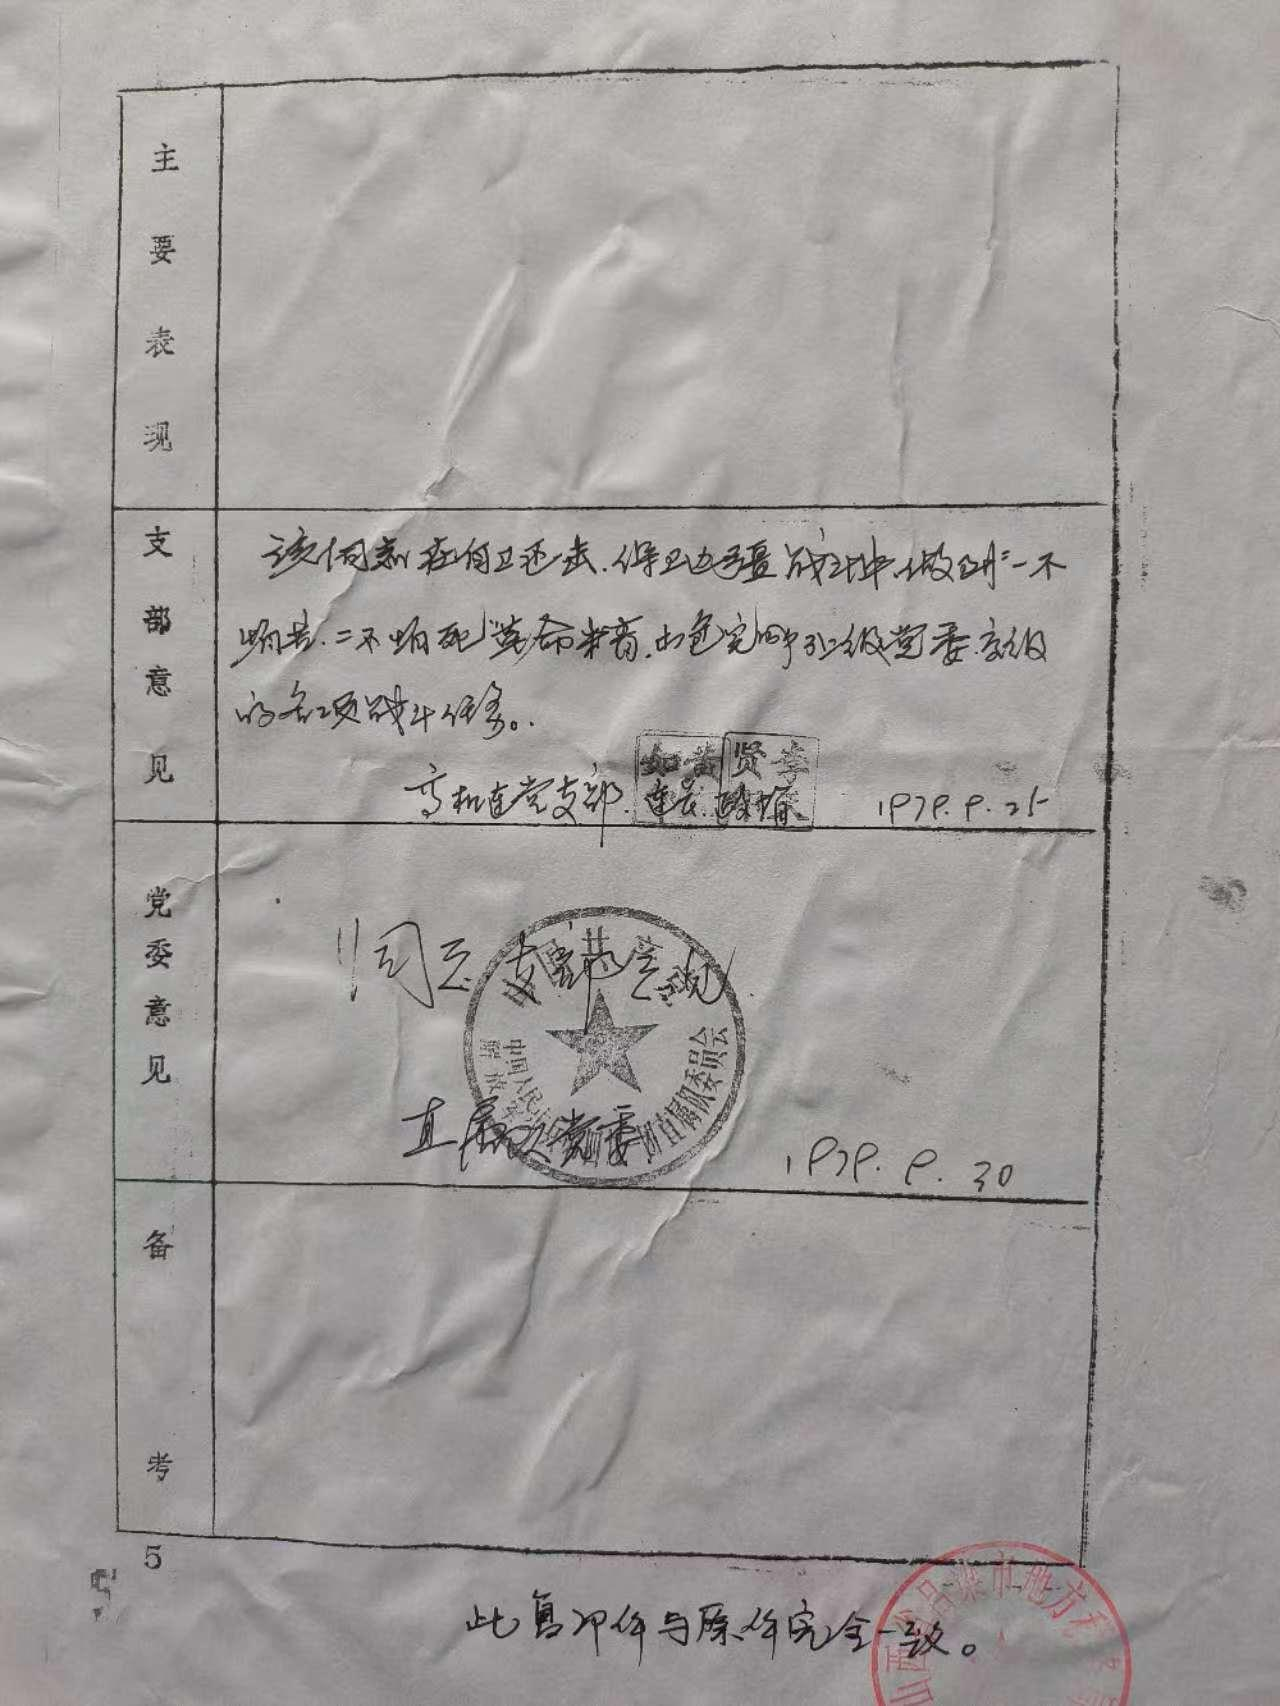 主要表现
支部意见
该同志在自卫还击.保卫边疆战斗中.做到"一不
怕苦.二不怕死"革命精神.出色完成了上级党委.交给
的各项战斗任务。
高机连党支部.
连长
1979.9.25
党委意见
同意支部意见.
中国人民
解放军
直属队委员会
直属队党委.
1979.9.30
备考
5
此复印件与原件完全一致。
山西省吕梁市地方